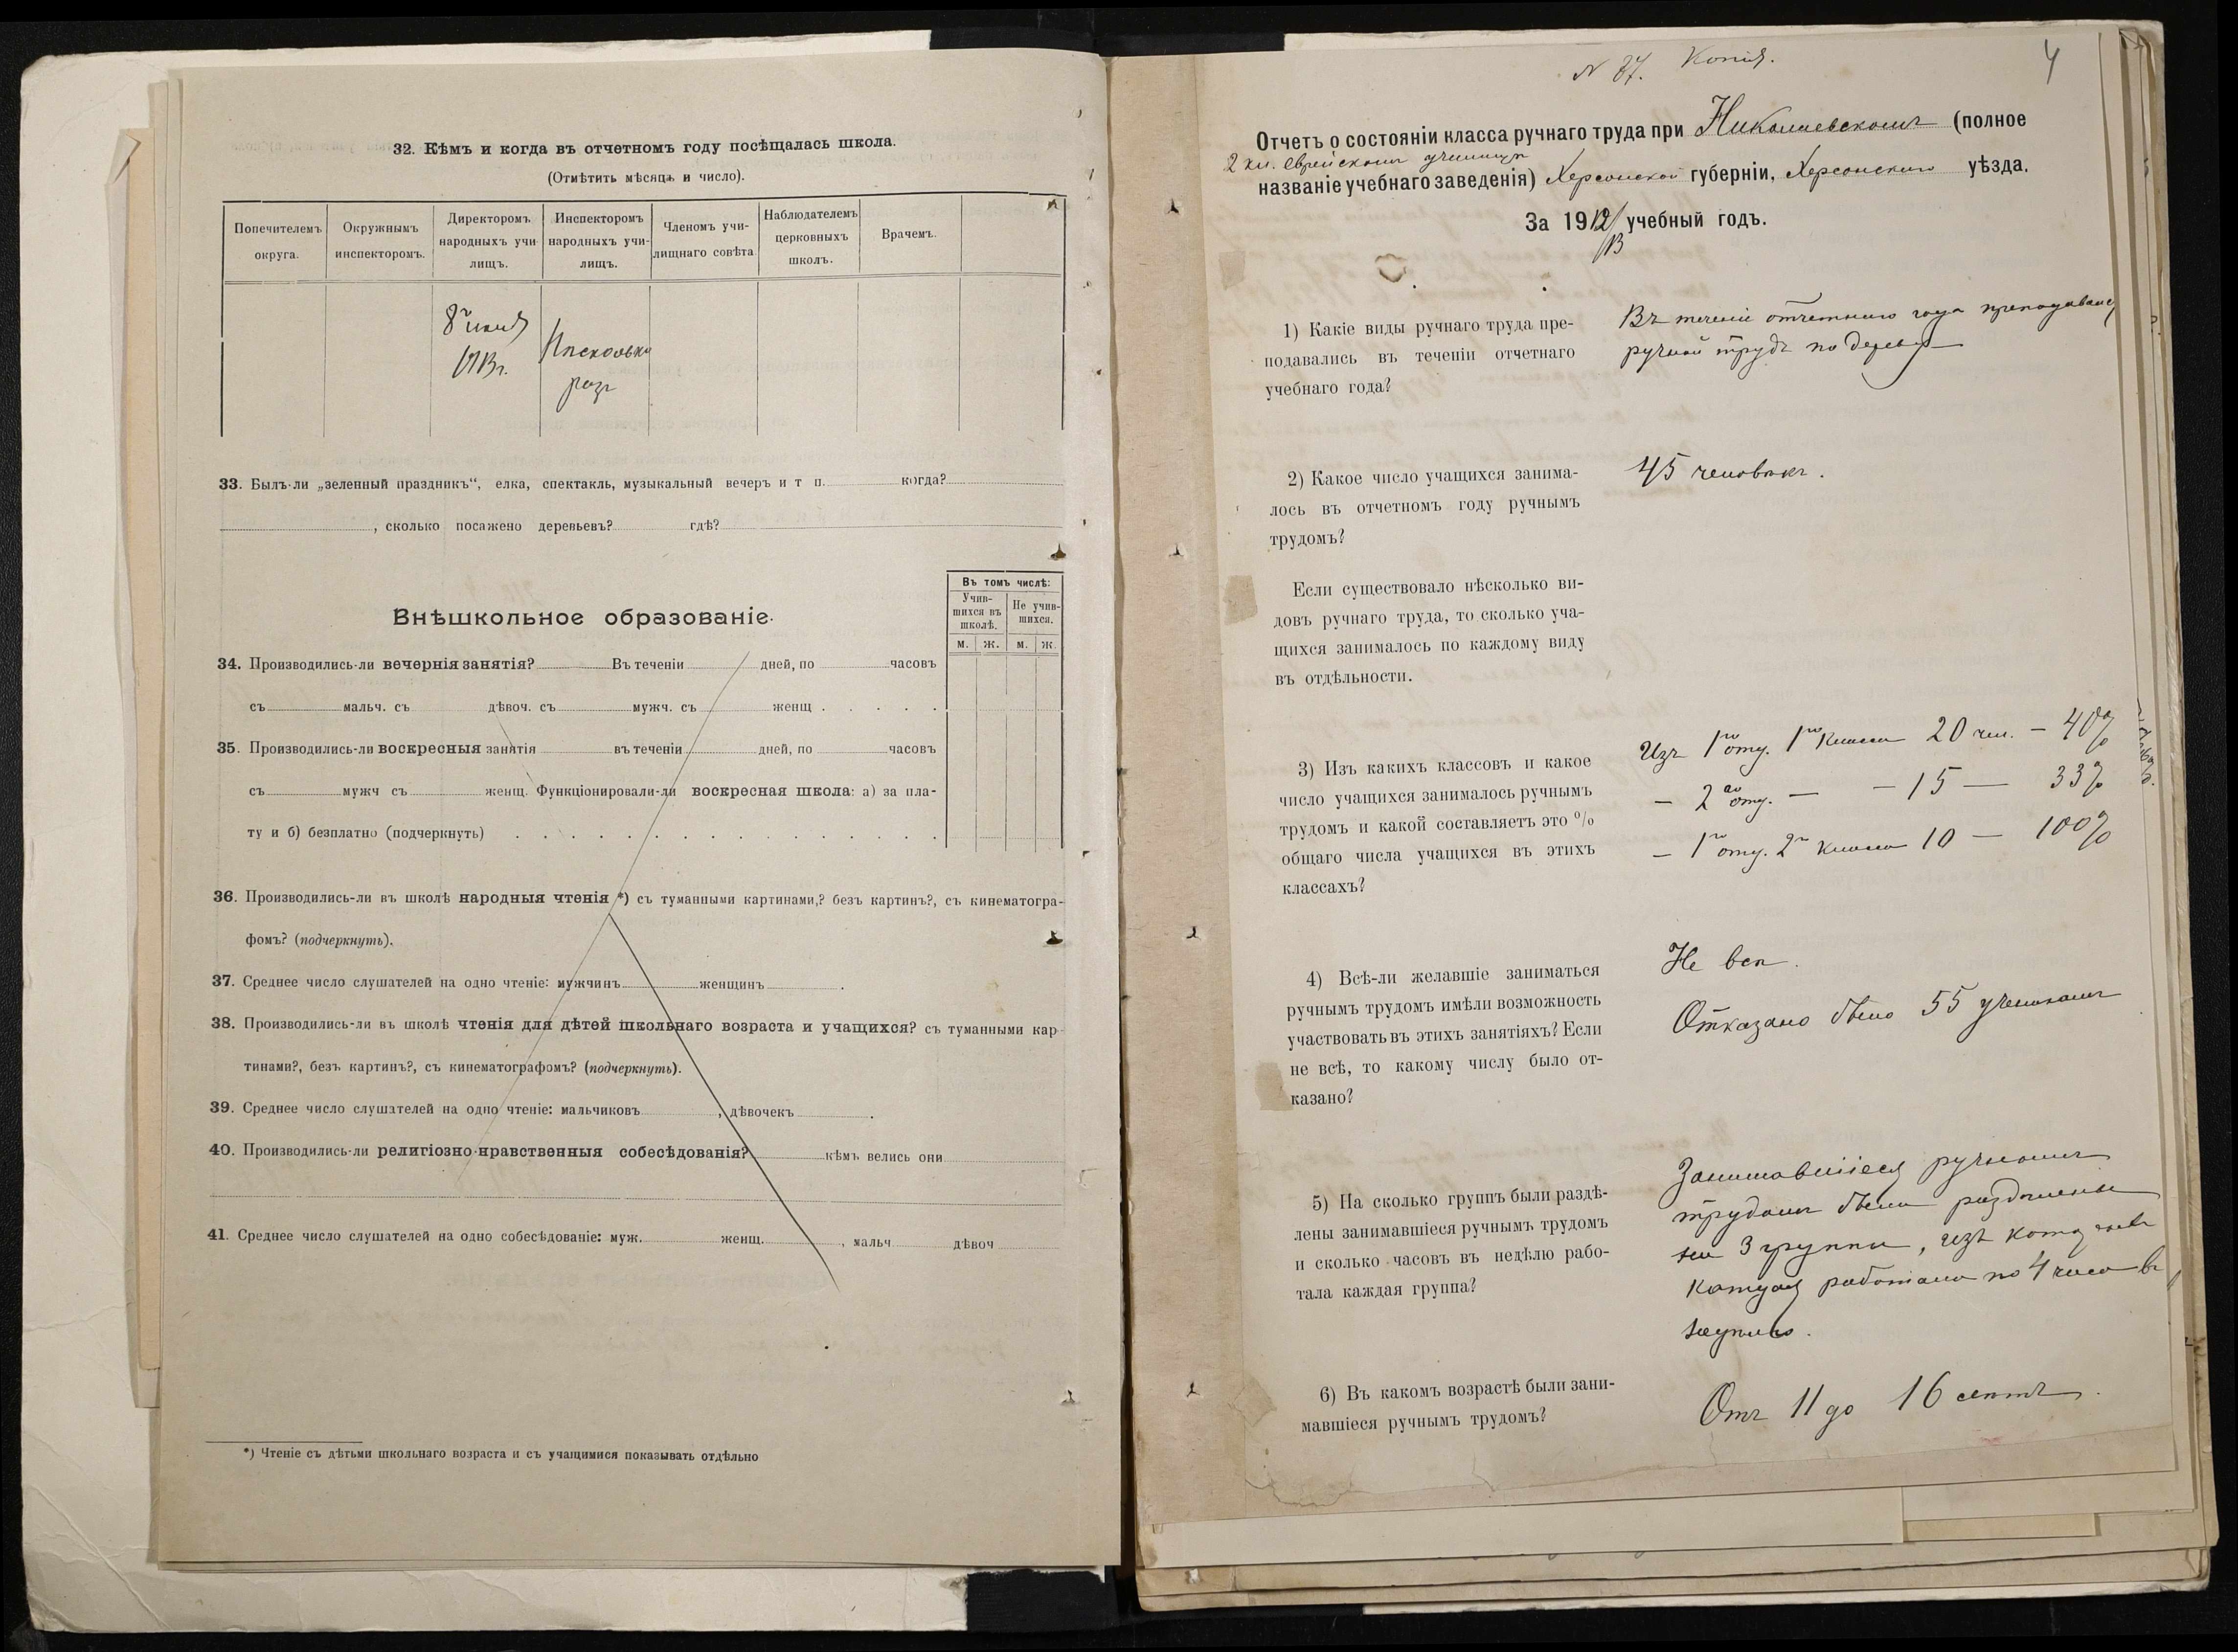 32. Кѣмъ и когда въ отчетномъ году посѣщалась школа.
(Отмѣтить мѣсяцъ и число).
Попечителемъ округа.
Окружнымъ инспекторомъ.
Директоромъ народныхъ учи-лищъ.
Инспекторомъ народныхъ учи-лищъ.
Членомъ учи-лищнаго совѣта
Наблюдателемъ церковныхъ школъ.
Врачемъ.
1913г.
Нѣсколько
разъ
33. Былъ-ли „зеленный праздникъ“, елка, спектакль, музыкальный вечеръ и т п. когда?
, сколько посажено деревьевъ? гдѣ?
Внѣшкольное образованіе.
Въ томъ числѣ:
Учив-шихся въ школѣ.
Не учив-шихся.
м. ж. м. ж.
34. Производились-ли вечернія занятія? Въ теченіи дней, по часовъ
съ мальч. съ дѣвоч. съ мужч. съ женщ . . . . .
35. Производились-ли воскресныя занятія въ теченіи дней, по часовъ
съ мужч съ женщ. Функціонировали-ли воскресная школа: а) за пла-
ту и б) безплатно (подчеркнуть) . . . . . . . . . . .
36. Производились-ли въ школѣ народныя чтенія *) съ туманными картинами,? безъ картинъ?, съ кинематогра-
фомъ? (подчеркнуть).
37. Среднее число слушателей на одно чтеніе: мужчинъ женщинъ .
38. Производились-ли въ школѣ чтенія для дѣтей школьнаго возраста и учащихся? съ туманными кар-
тинами?, безъ картинъ?, съ кинематографомъ? (подчеркнуть).
39. Среднее число слушателей на одно чтеніе: мальчиковъ , дѣвочекъ .
40. Производились-ли религіозно-нравственныя собесѣдованія? кѣмъ велись они
41. Среднее число слушателей на одно собесѣдованіе: муж. женщ. , мальч дѣвоч
*) Чтеніе съ дѣтьми школьнаго возраста и съ учащимися показывать отдѣльно
N 37. Копія.
4
Отчетъ о состояніи класса ручнаго труда при Николаевскомъ (полное
2 кл. еврейскомъ училищѣ
названіе учебнаго заведенія) Херсонской губерніи, Херсонскаго уѣзда.
За 1912/13 учебный годъ.
1) Какіе виды ручнаго труда пре-
подавались въ теченіи отчетнаго
учебнаго года?
Въ теченіе отчетнаго года преподавался
ручной трудъ по дереву
2) Какое число учащихся занима-
лось въ отчетномъ году ручнымъ
трудомъ?
45 человѣкъ.
Если существовало нѣсколько ви-
довъ ручнаго труда, то сколько уча-
щихся занималось по каждому виду
въ отдѣльности.
3) Изъ какихъ классовъ и какое
число учащихся занималось ручнымъ
трудомъ и какой составляетъ это %
общаго числа учащихся въ этихъ
классахъ?
Изъ 1го отд. 1го класса 20 чел. — 40%
— 2го отд. — — 15 — 33%
— 1го отд. 2го класса 10 — 100%
4) Всѣ-ли желавшіе заниматься
ручнымъ трудомъ имѣли возможность
участвовать въ этихъ занятіяхъ? Если
не всѣ, то какому числу было от-
казано?
Не всѣ.
Отказано было 55 ученикамъ
5) На сколько группъ были раздѣ-
лены занимавшіеся ручнымъ трудомъ
и сколько часовъ въ недѣлю рабо-
тала каждая группа?
Занимавшіеся ручнымъ
трудомъ были раздѣлены
на 3 группы, изъ коихъ
каждая работала по 4 часа въ
недѣлю.
6) Въ какомъ возрастѣ были зани-
мавшіеся ручнымъ трудомъ?
Отъ 11 до 16 лѣтъ.